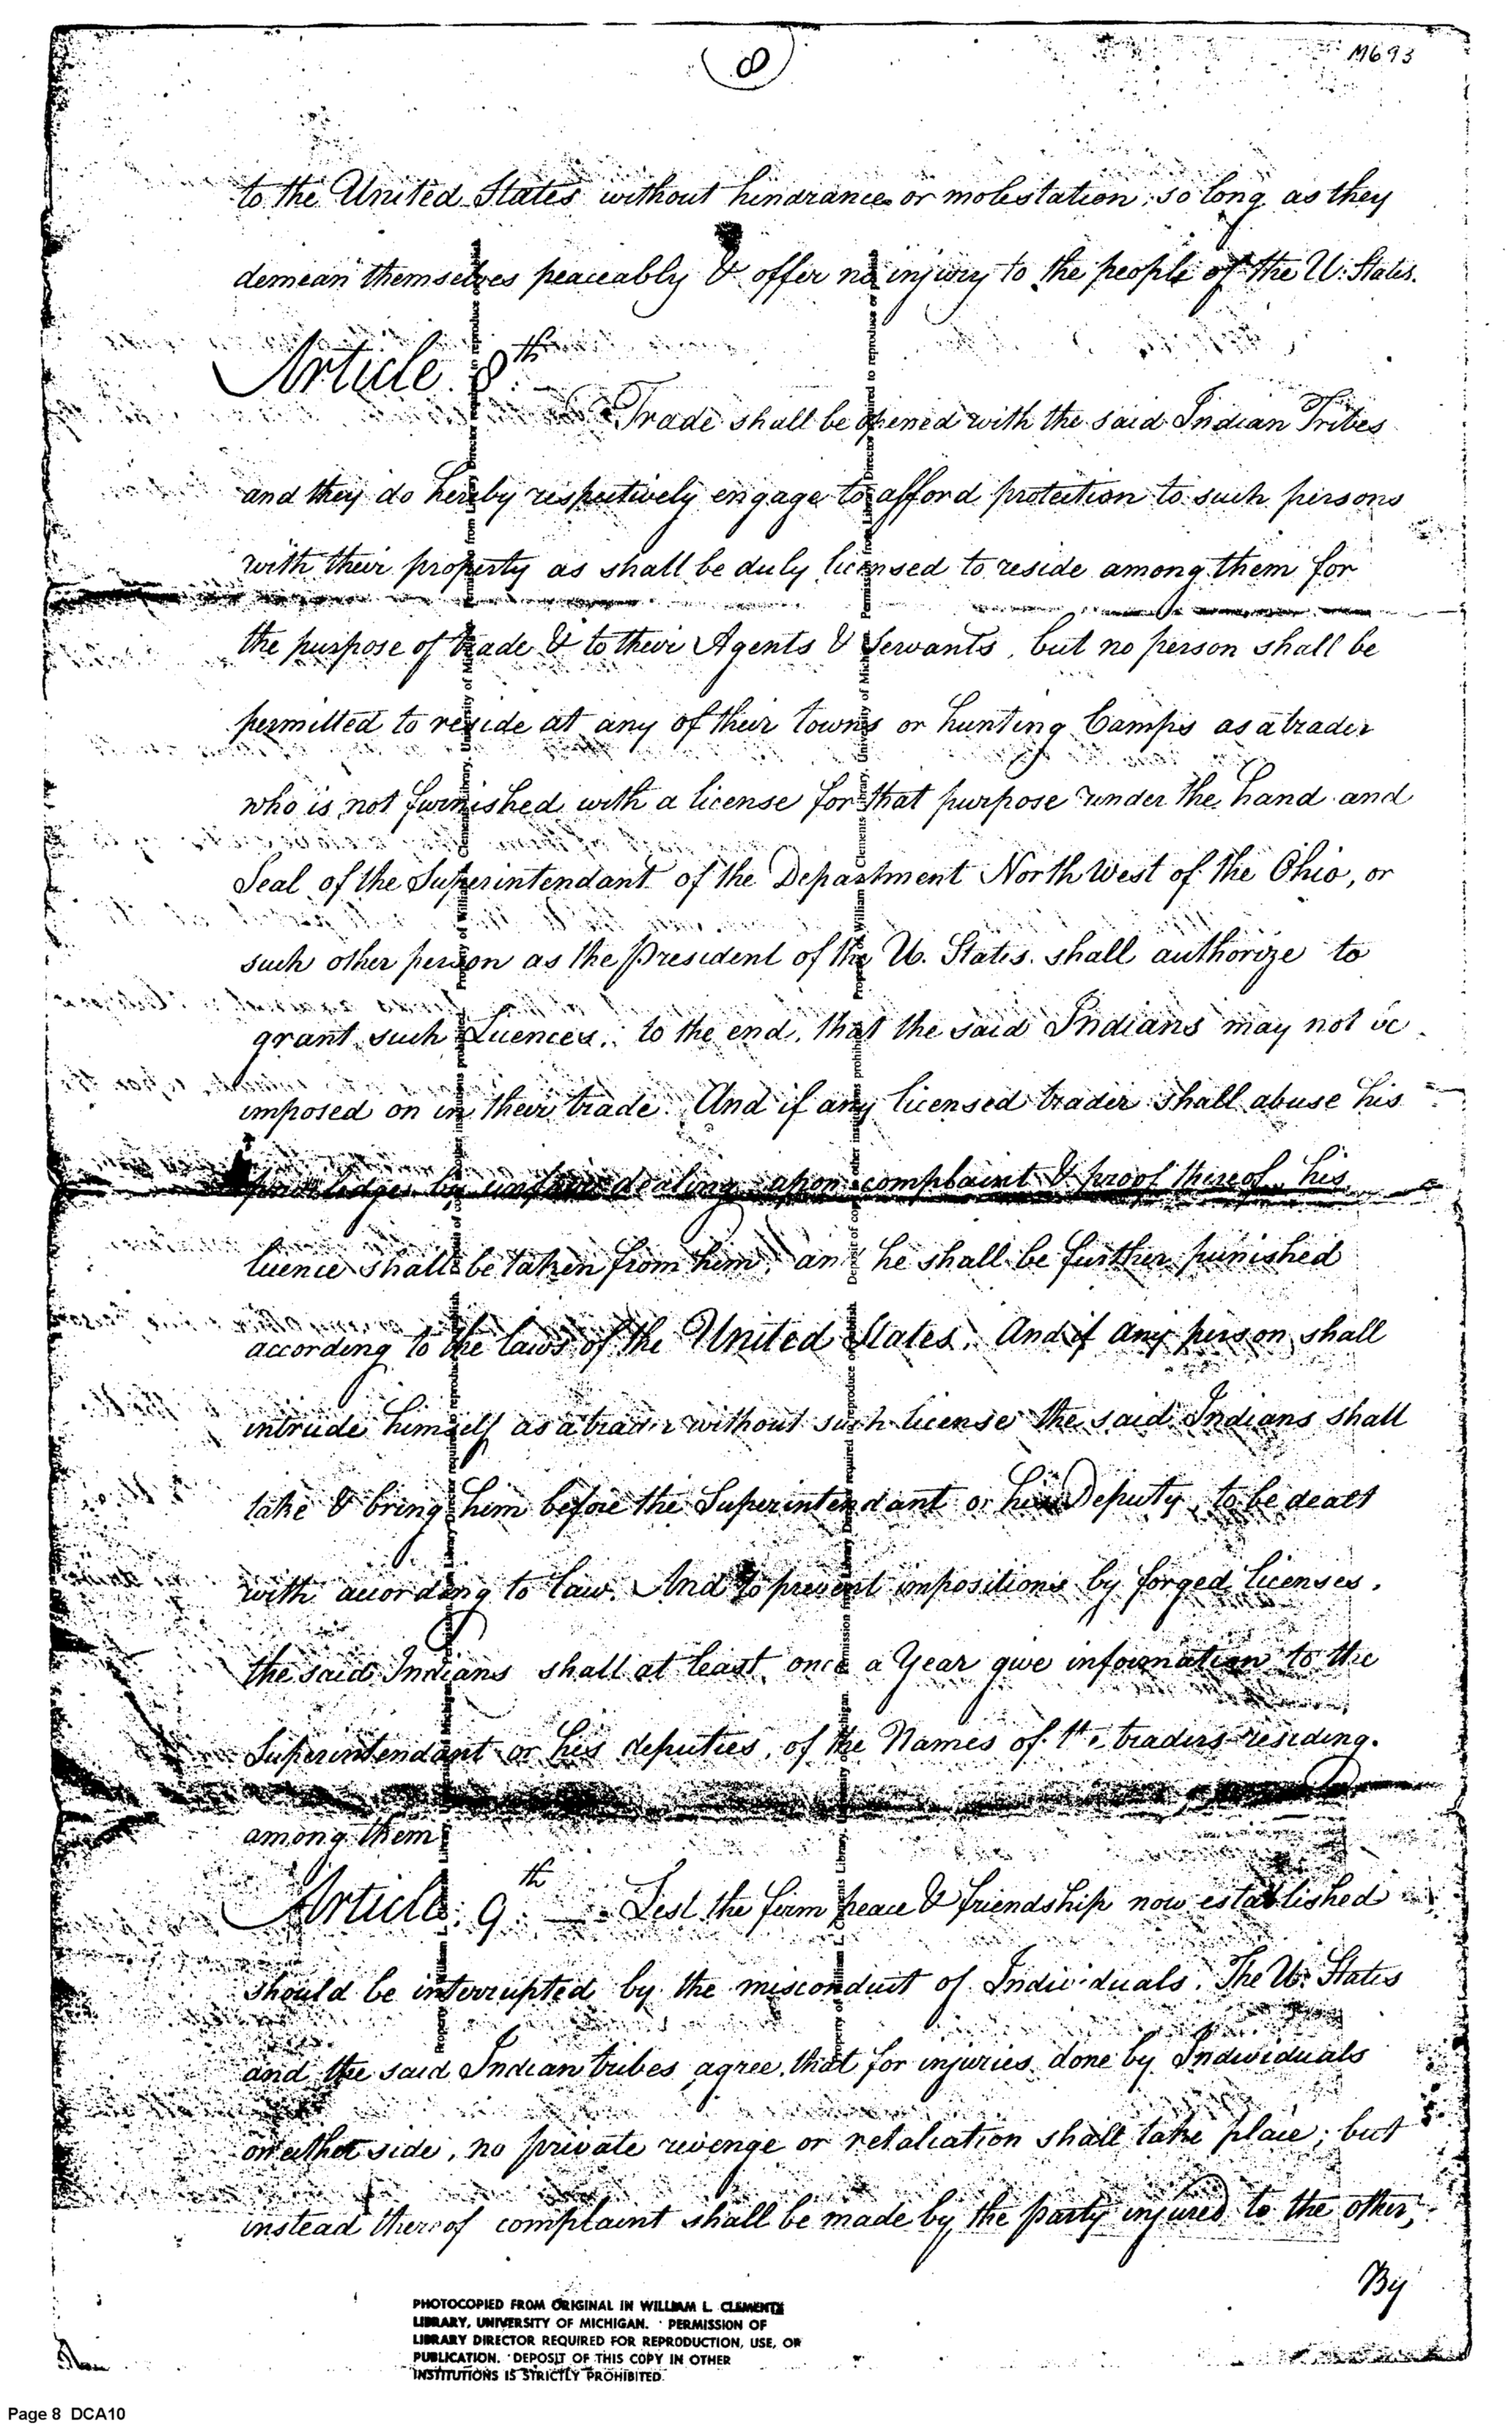 8
M693
to the United States without hindrance or molestation, so long as they
demean themselves peaceably & offer no injury to the people of the U. States.
Article 8th
Trade shall be opened with the said Indian Tribes
and they do hereby respectively engage to afford protection to such persons
with their property as shall be duly licensed to reside among them for
the purpose of trade & to their Agents & Servants, but no person shall be
permitted to reside at any of their towns or hunting Camps as a trader
who is not furnished with a license for that purpose under the hand and
Seal of the Superintendant of the Department North West of the Ohio, or
such other person as the President of the U. States shall authorize to
grant such Licences, to the end, that the said Indians may not be
imposed on in their trade. And if any licensed trader shall abuse his
by unfair dealing, upon complaint & proof thereof, his
licence shall be taken from him, and he shall be further punished
according to the laws of the United States. And if any person shall
intrude himself as a trader without such license the said Indians shall
take & bring him before the Superintendant or his Deputy, to be dealt
with according to law. And to prevent impositions by forged licenses,
the said Indians shall at least once a Year give information to the
Superintendant or his deputies, of the Names of the traders residing
among them
Article 9th Lest the firm peace & friendship now established
should be interrupted by the misconduct of Individuals, The U. States
and the said Indian tribes agree, that for injuries done by Individuals
on either side, no private revenge or retaliation shall take place; but
instead thereof complaint shall be made by the party injured to the other;
By
PHOTOCOPIED FROM ORIGINAL IN WILLIAM L. CLEMENTS
LIBRARY, UNIVERSITY OF MICHIGAN. PERMISSION OF
LIBRARY DIRECTOR REQUIRED FOR REPRODUCTION, USE, OR
PUBLICATION. DEPOSIT OF THIS COPY IN OTHER
INSTITUTIONS IS STRICTLY PROHIBITED.
Property of William L. Clements Library, University of Michigan. Permission from Library Director required to reproduce or publish.
Deposit of copy in other institutions prohibited.
Property of William L. Clements Library, University of Michigan. Permission from Library Director required to reproduce or publish.
Deposit of copy in other institutions prohibited.
Page 8 DCA10